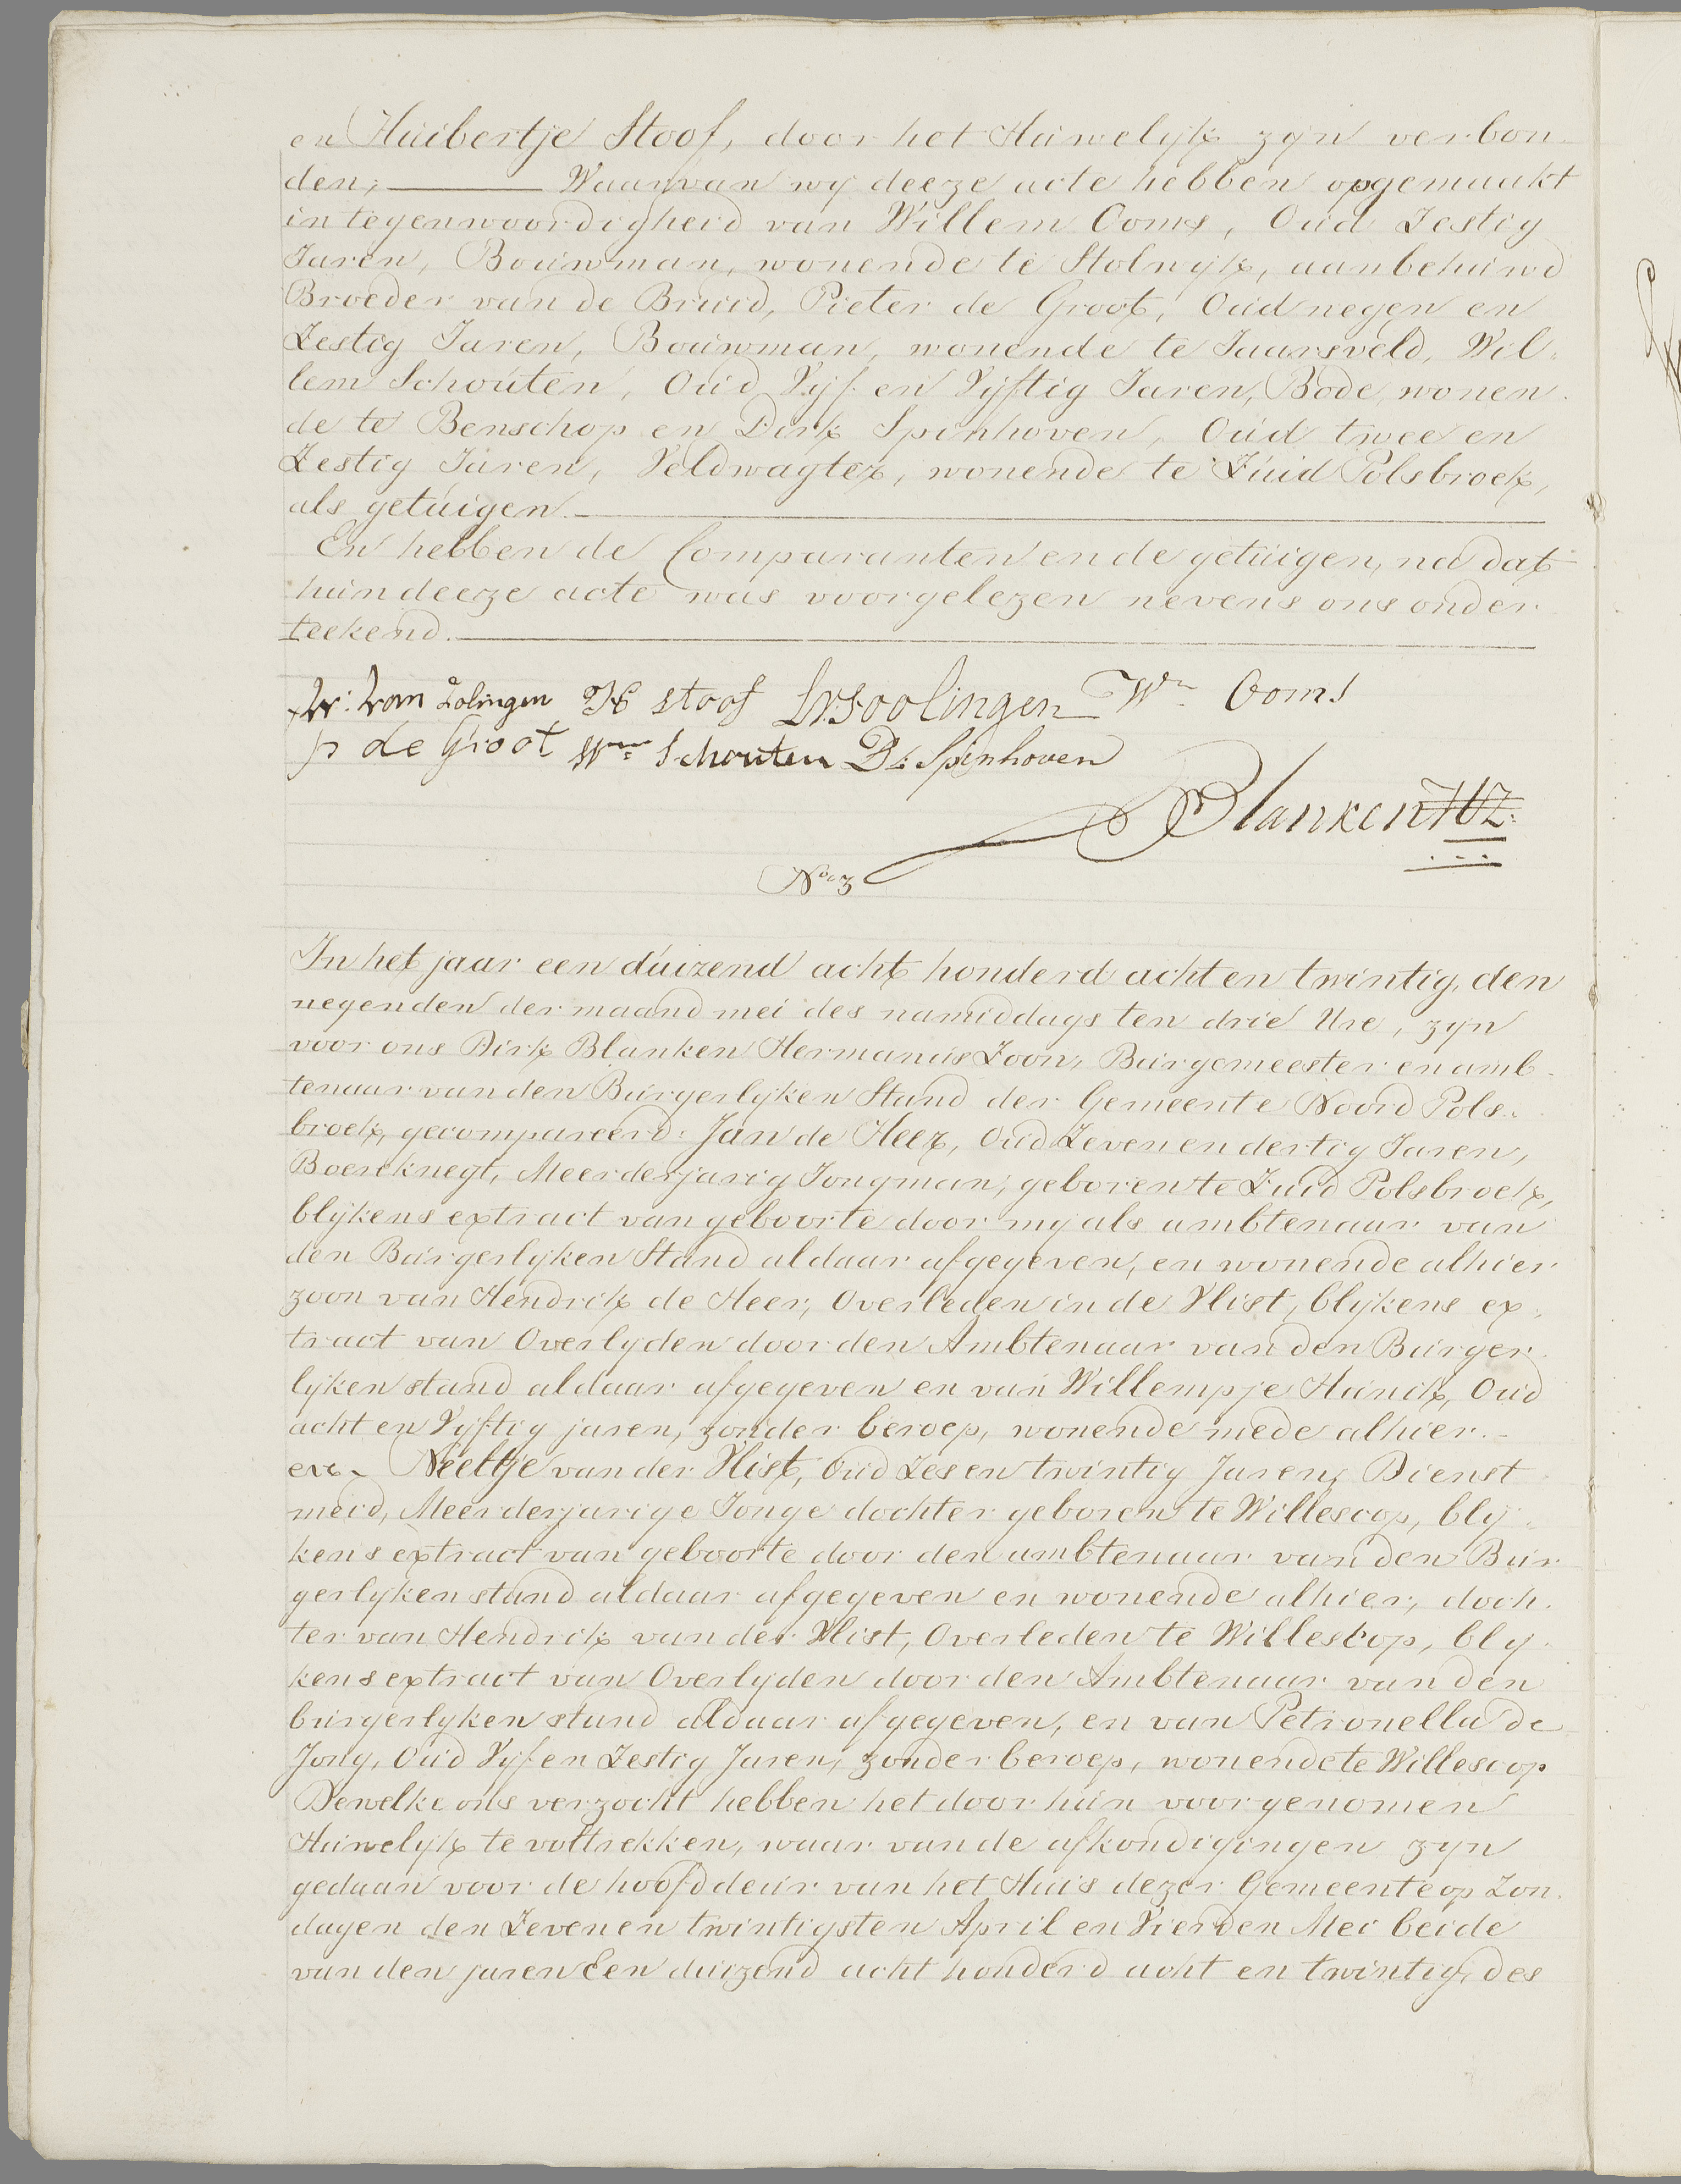 en Huibertje Stoof, door het Huwelijk zyn verbon-
den; Waarvan wy deeze acte hebben opgemaakt
in tegenwoordigheid van Willem Ooms, Oud Zestig
Jaren, Bouwman, wonende te Stolwyk, aanbehuwd
Broeder van de Bruid, Pieter de Groot, Oud negen en
Zestig Jaren, Bouwman, wonende te Jaarsveld, Wil-
lem Schouten, Oud Vyf en Vyftig Jaren, Bode, wonen-
de te Benschop en Dirk Spinhoven, Oud twee en
Zestig Jaren, Veldwagter, wonende te Zuid Polsbroek,
als getuigen.
En hebben de Comparanten en de getuigen, na dat
hun deeze acte was voorgelezen nevens ons onder
teekend.
W: van Zolingen H Stoof Soolingen Wm Ooms
p de Groot Wm Schouten D: Spinhoven
Blanken HZ:
No 3
In het jaar een duizend acht honderd acht en twintig, den
negenden der maand mei des namiddags ten drie Ure, zyn
voor ons Dirk Blanken Hermanus Zoon, Burgemeester en amb-
tenaar van den Burgerlyken Stand der Gemeente Noord Pols-
broek, gecompareerd: Jan de Heer, Oud Zeven en dertig Jaren,
Boereknegt, Meerderjarig Jongman, geboren te Zuid Polsbroek,
blykens extract van geboorte door my als ambtenaar van
den Burgerlyken Stand aldaar afgegeven, en wonende alhier
zoon van Hendrik de Heer, Overleden in de Vlist, blykens ex-
tract van Overlyden door den Ambtenaar van den Burger-
lyken stand aldaar afgegeven en van Willempje Hunik, Oud
acht en Vyftig jaren, zonder beroep, wonende mede alhier.
en Neeltje van der Vlist, Oud Zes en twintig Jaren, Dienst
meid, Meerderjarige Jonge dochter geboren te Willescop, bly-
kens extract van geboorte door den ambtenaar van den Bur
gerlyken stand aldaar afgegeven en wonende alhier, doch-
ter van Hendrik van der Vlist, Overleden te Willescop, bly-
kens extract van Overlyden door den Ambtenaar van den
burgerlyken stand aldaar afgegeven, en van Petronella de
Jong, Oud Vyf en Zestig Jaren, zonder beroep, wonende te Willescop
Dewelke ons verzocht hebben het door hun voorgenomen
Huwelyk te voltrekken, waar van de afkondigingen zyn
gedaan voor de hoofddeur van het Huis dezer Gemeente op Zon-
dagen den Zeven en twintigsten April en Vierden Mei beide
van den jaren Een duizend acht honderd acht en twintig, des